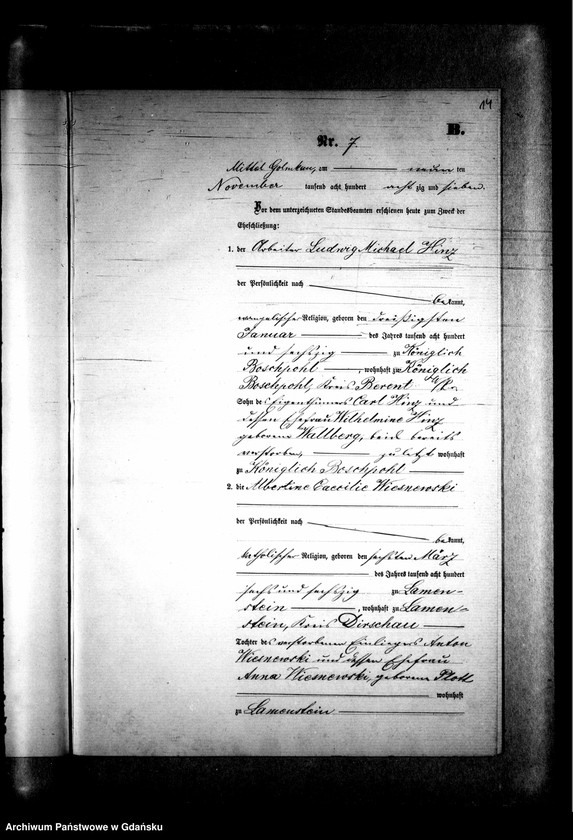 14
B.
Nr. 7
Mittel Golmkau, am neun ten
November tausend acht hundert acht zig und sieben.
Vor dem unterzeichneten Standesbeamten erschienen heute zum Zweck der
Eheschließung:
1. der Arbeiter Ludwig Michael Hinz
der Persönlichkeit nach
bekannt,
evangelischer Religion, geboren den dreißigsten
Januar des Jahres tausend acht hundert
und sechszig zu Königlich
Boschpohl, wohnhaft zu Königlich
Boschpohl, Kreis Berent
Sohn des Eigenthümers Carl Hinz und
dessen Ehefrau Wilhelmine Hinz
geborene Wallberg, beide bereits
verstorben, zuletzt wohnhaft
zu Königlich Boschpohl
2. die Albertine Caecilie Wiesnewski
der Persönlichkeit nach
bekannt,
katholischer Religion, geboren den sechsten März
des Jahres tausend acht hundert
sechs und sechszig zu Lamen-
stein, wohnhaft zu Lamen-
stein, Kreis Dirschau
Tochter des verstorbenen Einliegers Anton
Wiesnewski und dessen Ehefrau
Anna Wiesnewski, geborene Plott
wohnhaft
zu Lamenstein
Archiwum Państwowe w Gdańsku